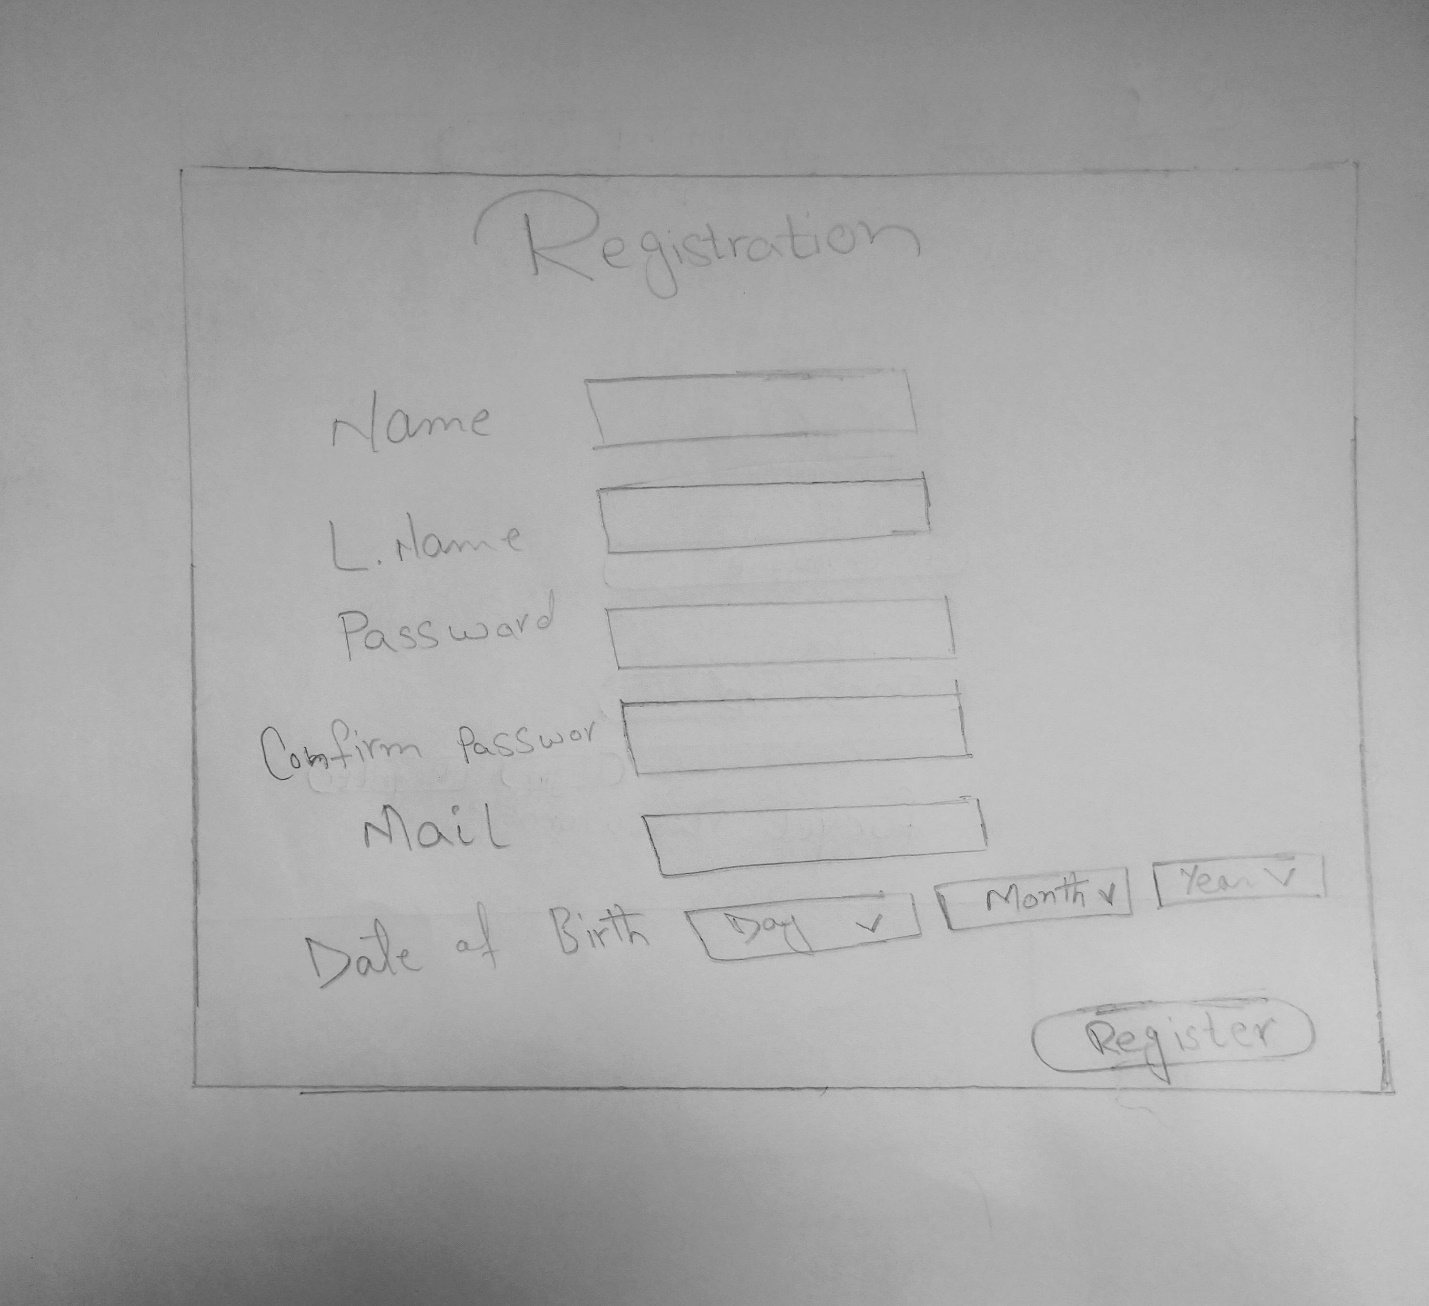 Registration
Name
L. Name
Password
Comfirm Passwor
Mail
Date of Birth Day Month Year
Register